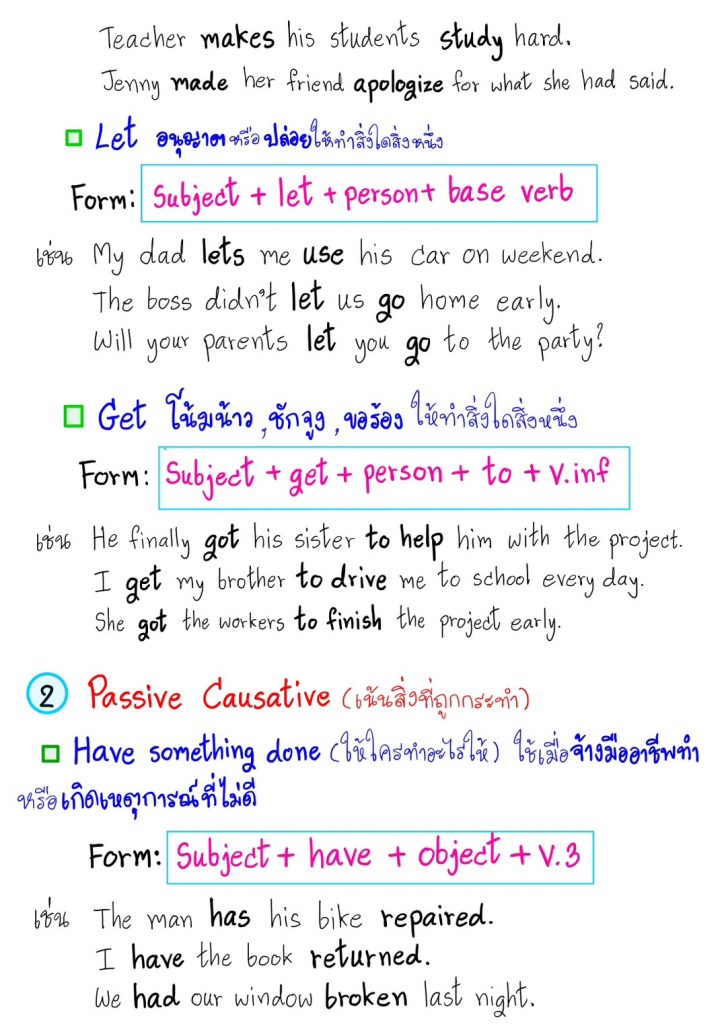 Teacher makes his students study hard.
Jenny made her friend apologize for what she had said.
Let อนุญาตหรือปล่อยให้ทำสิ่งใดสิ่งหนึ่ง
Form: Subject + let + person + base verb
เช่น My dad lets me use his car on weekend.
The boss didn't let us go home early.
Will your parents let you go to the party?
Get โน้มน้าว, ชักจูง, ขอร้อง ให้ทำสิ่งใดสิ่งหนึ่ง
Form: Subject + get + person + to + v.inf
เช่น He finally got his sister to help him with the project.
I get my brother to drive me to school every day.
She got the workers to finish the project early.
2 Passive Causative (เน้นสิ่งที่ถูกกระทำ)
Have something done (ให้ใครทำอะไรให้) ใช้เมื่อจ้างมืออาชีพทำ
หรือเกิดเหตุการณ์ที่ไม่ดี
Form: Subject + have + object + V.3
เช่น The man has his bike repaired.
I have the book returned.
We had our window broken last night.